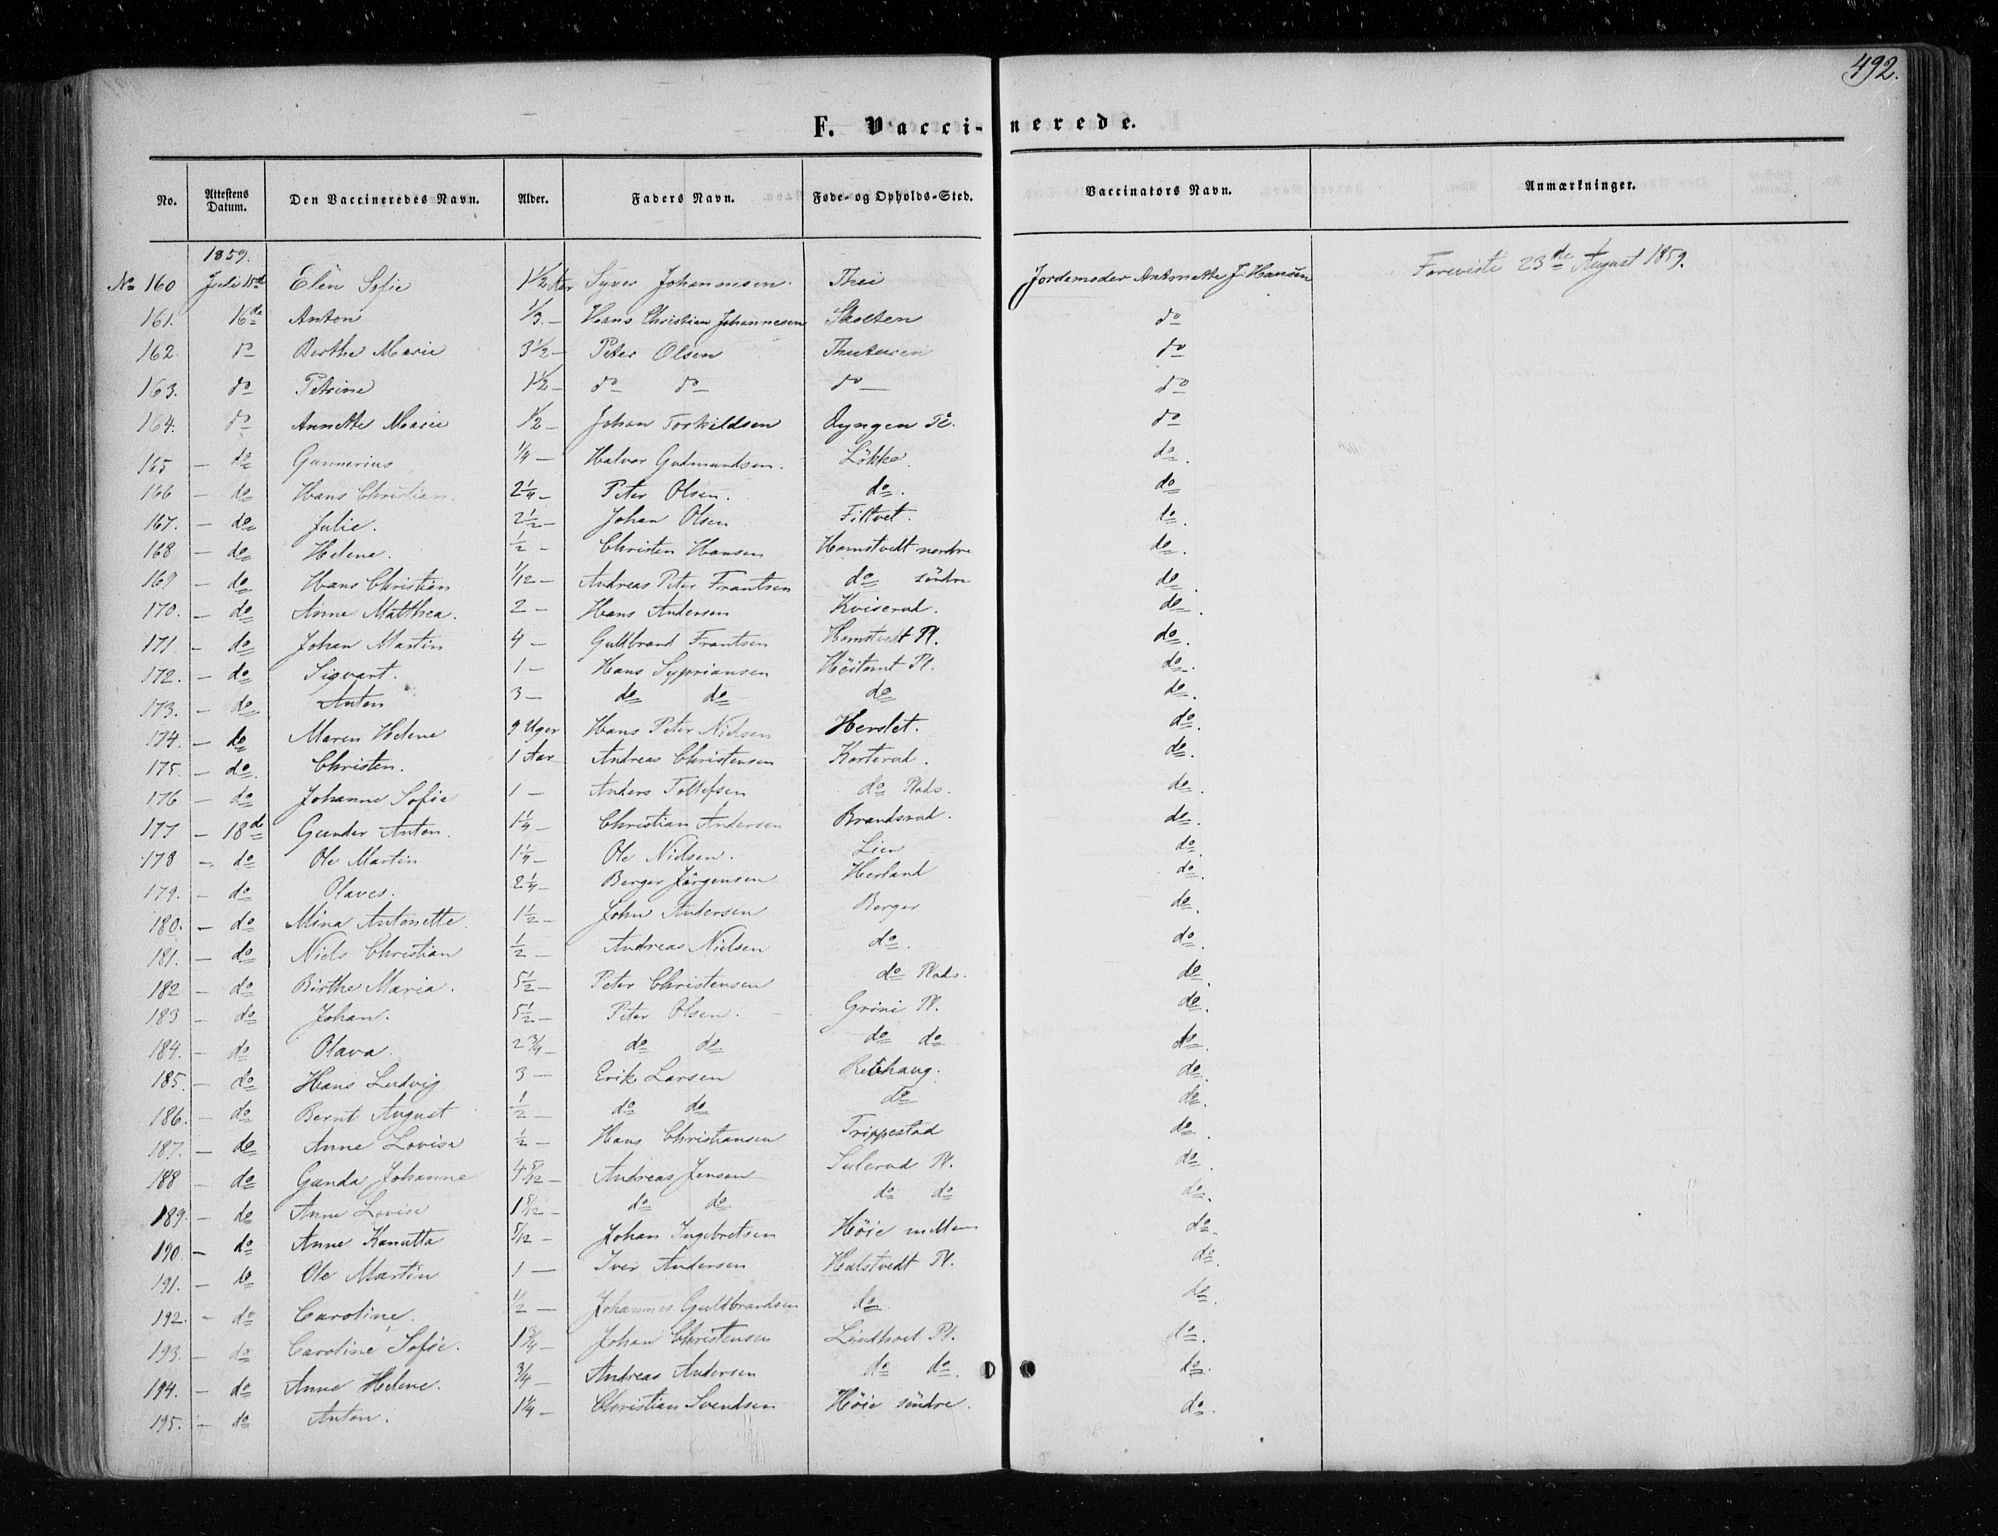 492.
F. Vaccinerede.
No. Attestens Datum. Den Vaccineredes Navn. Alder. Faders Navn. Føde- og Opholds-Sted. Vaccinators Navn. Anmærkninger.
1859.
No 160 Juli 15de Elen Sofie 1 1/2 Aar Syver Johannesen. Thei Jordemoder Antonette J. Hansen Foreviste 23de August 1859.
161. 16de Anton 1/3 — Hans Christian Johannesen Skolten do
162. do Berthe Marie 3 1/2 — Peter Olsen do
163. do Petrine 1 1/2 — do do do do
164. do Annette Marie 1/2 — Johan Torkildsen Dyngen Pl. do
165 — do Gunnerius 1/4 — Halvor Gudmundsen. Løkke. do.
166 — do Hans Christian. 2 1/4 — Peter Olsen. do. do
167. — do Julie. 2 1/2 — Johan Olsen Filtvet. do.
168 — do Helene. 1/2 — Christen Hansen Homstvedt nordre do.
169 — do Hans Christian 1/12 — Andreas Peter Frantsen do søndre do.
170. — do Anne Matthea. 2 — Hans Andersen Kviserud. do.
171. — do Johan Martin 4 — Guldbrand Frantsen Homstvedt Pl. do.
172. — do Sigvart. 1 — Hans Sypriansen Høitomt Pl. do.
173. — do Anton 3 — do do do do.
174. — do Maren Helene 9 Uger Hans Peter Nielsen Herslet. do.
175. — do. Christen. 1 Aar Andreas Christensen Korterud. do.
176 — do Johanne Sofie 1 — Anders Tollefsen do Plads. do.
177 — 18de Gunder Anton. 1 1/4 — Christian Andersen Brandsrud. do.
178 — do Ole Martin 1 1/4 — Ole Nielsen. Lien do.
179. — do Olaves. 2 1/4 — Berger Jørgensen Herland do.
180. — do Mina Antonette. 1 1/2 — John Andersen Berger do.
181. — do Niels Christian 1/2 — Andreas Nielsen do. do.
182 — do Birthe Maria. 5 1/2 — Peter Christensen do Plads. do.
183 — do Johan. 5 1/2 — Peter Olsen. Grøni Pl. do.
184. — do Olava. 2 3/4 — do do do do do.
185. — do Hans Ludvig 3 — Erik Larsen do.
186. — do Bernt August 1/2 — do do do do.
187. — do Anne Lovise 1/2 — Hans Christiansen Trippestad do.
188 — do Gunda Johanne 4 5/12 — Andreas Jensen Sulerud Pl. do.
189. — do Anne Lovise 1 5/12 — do do do do do.
190 — do Anne Kanutta 5/12 — Johan Ingebretsen Høie mellem do.
191. — do Ole Martin 1 — Iver Andersen Halstvedt Pl. do.
192. — do Caroline. 1/2 — Johannes Guldbrandsen do. do.
193. — do Caroline Sofie. 1 3/4 — Johan Christensen Lindhoel Pl. do.
194. — do Anne Helene. 3/4 — Andreas Andersen do do. do.
195. — do Anton. 1 1/4 — Christian Svendsen Høie søndre. do.